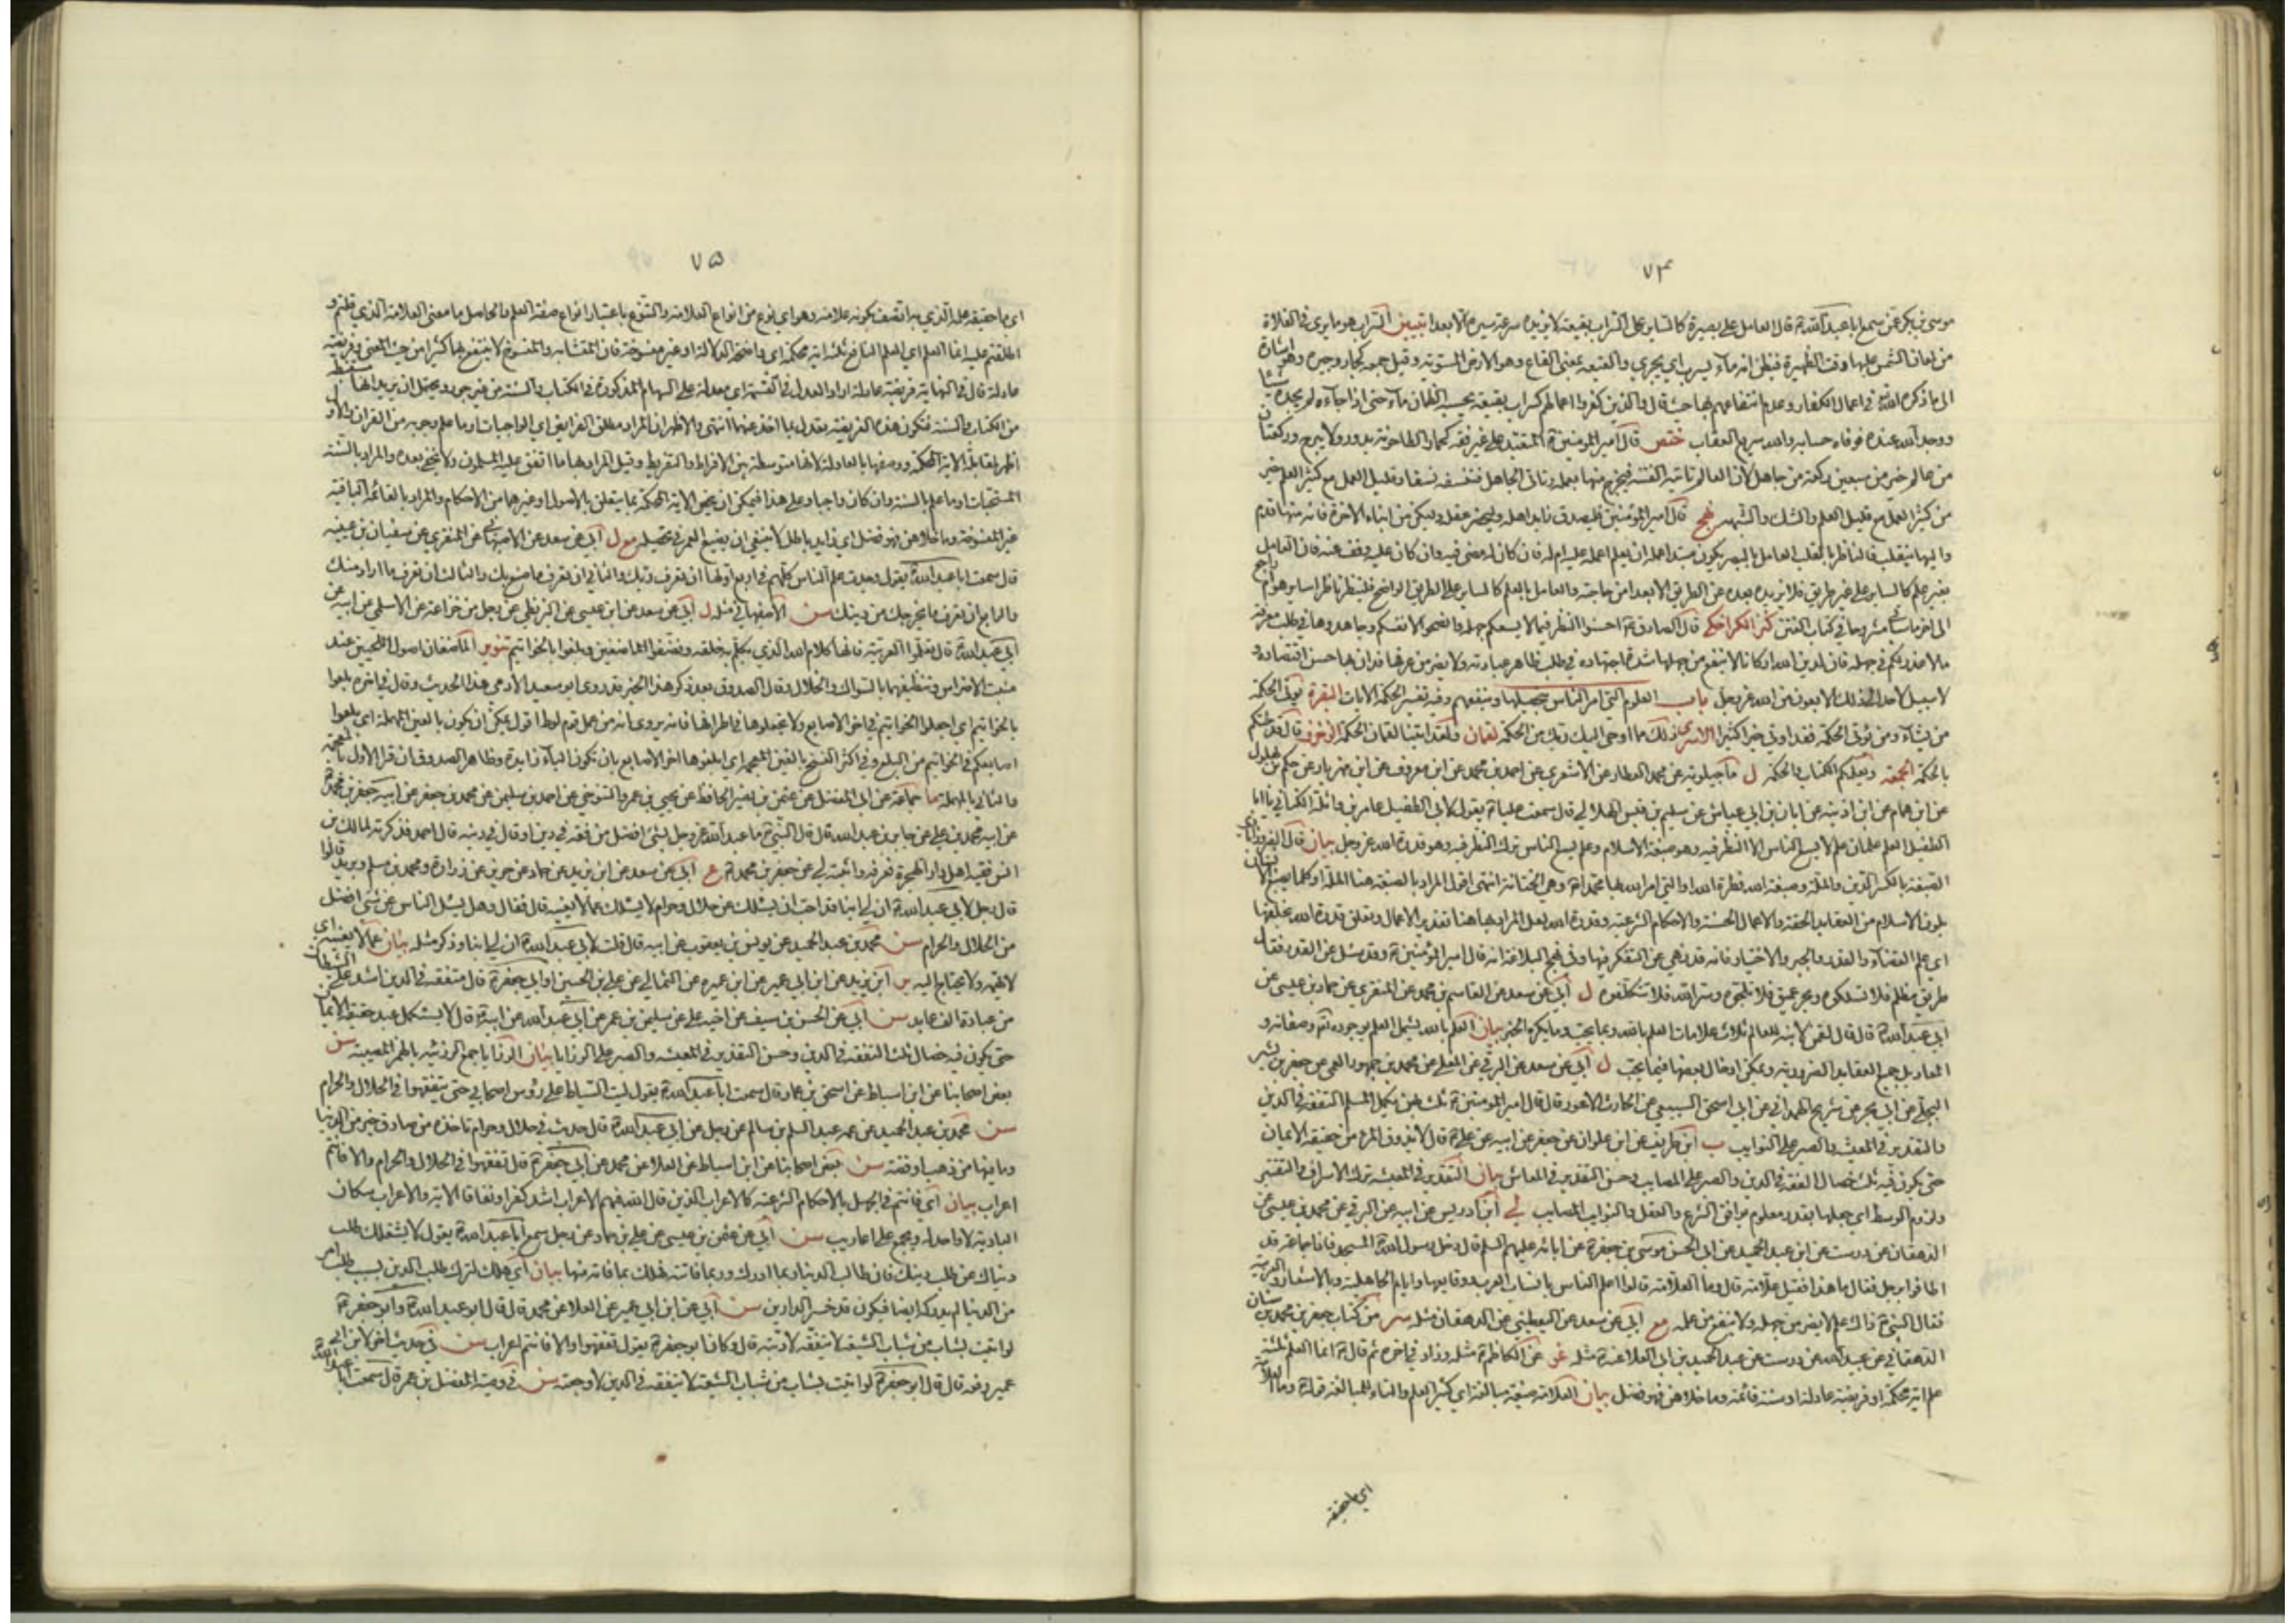 ٧٤
موسى بن بكر عمن سمع ابا عبد الله ع قال العامل على بصيرة كالسائر على السراب بقيعة لا يزيده سرعة سيره الا بعدا تبيين السراب هو ما يرى في الفلاة
من لمعان الشمس عليها وقت الظهيرة فيظن انه ماء يسرب اي يجري والقيعة بمعنى القاع وهو الارض المستوية وقيل جمعه كجار وجيرة وهو اشارة
الى ما ذكره الله في اعمال الكفار وعدم انتفاعهم بها حيث قال والذين كفروا اعمالهم كسراب بقيعة يحسبه الظمان ماء حتى اذا جاءه لم يجده شيئا
ووجد الله عنده فوفاه حسابه والله سريع العقاب ختص قال امير المؤمنين ع المتعبد على غير فقه كحمار الطاحونة يدور ولا يبرح وركعتان
من عالم خير من سبعين ركعة من جاهل لان العالم تاتيه الفتنة فيخرج منها بعلمه وتاتي الجاهل فتنسفه نسفا وقليل العمل مع كثير العلم خير
من كثير العمل مع قليل العلم والشك والشبهة نهج قال امير المؤمنين فليصدق رائد اهله وليحضر عقله وليكن من ابناء الاخرة فانه منها قدم
واليها ينقلب فالناظر بالقلب العامل بالبصر يكون مبتدا عمله ان يعلم اعمله عليه ام له فان كان له مضى فيه وان كان عليه وقف عنه فان العامل
بغير علم كالسائر على غير طريق فلا يزيده بعده عن الطريق الا بعدا من حاجته والعامل بالعلم كالسائر على الطريق الواضح فلينظر ناظر اسائر هو ام راجع
الى اخر ما سياتي مشروحا في كتاب الفتن كنز الكراجكي قال الصادق ع احسنوا النظر فيما لا يسعكم جهله وانصحوا لانفسكم وجاهدوها في طلب معرفة
ما لا عذر لكم في جهله فان لدين الله اركانا لا ينفع من جهلها شدة اجتهاده في طلب ظاهر عبادته ولا يضر من عرفها فدان بها حسن اقتصاده و
لا سبيل لاحد الى ذلك الا بعون من الله عز وجل باب العلوم التي امر الناس بتحصيلها وينفعهم وفيه تفسير الحكمة الايات البقرة يؤتي الحكمة
من يشاء ومن يؤتى الحكمة فقد اوتي خيرا كثيرا الاسرى ذلك مما اوحى اليك ربك من الحكمة لقمان ولقد اتينا لقمان الحكمة الزخرف قال قد جئتكم
بالحكمة الجمعة ويعلمكم الكتاب والحكمة ل ماجيلويه عن محمد العطار عن الاشعري عن احمد بن محمد عن ابن معروف عن ابن مهزيار عن حكم بن بهلول
عن ابن همام عن ابن اذينة عن ابان بن ابي عياش عن سليم بن قيس الهلالي قال سمعت عليا ع يقول لابي الطفيل عامر بن واثلة الكناني يا ابا
الطفيل العلم علمان علم لا يسع الناس الا النظر فيه وهو صبغة الاسلام وعلم يسع الناس ترك النظر فيه وهو قدرة الله عز وجل بيان قال الفيروزابادي
الصبغة بالكسر الدين والملة وصبغة الله فطرة الله او التي امر الله بها محمدا ص وهي الختانة انتهى اقول المراد بالصبغة هنا الملة او كلما يصبغ الانسان
بلون الاسلام من العقايد الحقة والاعمال الحسنة والاحكام الشرعية وقدرة الله لعل المراد بها هنا تقدير الاعمال وتعلق قدرة الله بخلقها
اي علم القضاء والقدر والجبر والاختيار فانه قد نهي عن التفكر فيها وفي نهج البلاغة انه قال امير المؤمنين ع وقد سئل عن القدر فقال
طريق مظلم فلا تسلكوه وبحر عميق فلا تلجوه وسر الله فلا تتكلفوه ل ابي عن سعد عن القاسم بن محمد عن المنقري عن حماد بن عيسى عن
ابي عبد الله ع قال قال لقمن لابنه للعالم ثلاث علامات العلم بالله وبما يحب وما يكره الخبر بيان العلم بالله يشمل العلم بوجوده تع وصفاته و
المعاد بل جميع العقايد الضرورية ويمكن ادخال بعضها فيما يحب ل ابي عن سعد عن البرقي عن المعلى عن محمد بن جمهور العمي عن جعفر بن بشير
البجلي عن ابي بحر عن شريح الهمداني عن ابي اسحق السبيعي عن الحارث الاعور قال قال امير المؤمنين ع ثلث بهن يكمل المسلم التفقه في الدين
والتقدير في المعيشة والصبر على النوايب ب ابن ظريف عن ابن علوان عن جعفر عن ابيه عن علي ع قال لا يذوق المرء من حقيقة الايمان
حتى يكون فيه ثلث خصال الفقه في الدين والصبر على المصايب وحسن التقدير في المعاش بيان التقدير في المعيشة ترك الاسراف والتقتير
ولزوم الوسط اي جعلها بقدر معلوم يوافق الشرع والعقل والنوايب المصايب لي ابن ادريس عن ابيه عن البرقي عن محمد بن عيسى عن
الدهقان عن درست عن ابن عبد الحميد عن ابي الحسن موسى بن جعفر ع عن ابائه عليهم السلم قال دخل رسول الله ص المسجد فاذا جماعة قد
اطافوا برجل فقال ما هذا فقيل علامة قال وما العلامة قالوا اعلم الناس بانساب العرب ووقايعها وايام الجاهلية وبالاشعار والعربية
فقال النبي ص ذاك علم لا يضر من جهله ولا ينفع من علمه مع ابي عن سعد عن اليقطيني عن الدهقان مثله سر من كتاب جعفر بن محمد بن سنان
الدهقاني عن عبيد الله عن درست عن عبد الحميد بن ابي العلا عنه ع مثله غو عن الكاظم ع مثله وزاد في اخره ثم قال ع انما العلم ثلثة
علم اية محكمة او فريضة عادلة او سنة قائمة وما خلاهن فهو فضل بيان العلامة صيغة مبالغة اي كثير العلم والتاء للمبالغة قوله ع وما العلامة
اي ما حقيقة
٧٥
اي ما حقيقة علمه الذي به اتصف بكونه علامة وهو اي نوع من انواع العلامة والتنوع باعتبار انواع صفة العلم والحاصل ما معنى العلامة الذي قلتم و
اطلقتم عليه انما العلم اي العلم النافع ثلثة اية محكمة اي واضحة الدلالة او غير منسوخة فان المتشابه والمنسوخ لا ينتفع بهما كثيرا من حيث المعنى وفريضة
عادلة قال في النهاية فريضة عادلة اراد العدل في القسمة اي معدلة على السهام المذكورة في الكتاب والسنة من غير جور ويحتمل ان يريد انها مستنبطة
من الكتاب والسنة فتكون هذه الفريضة تعدل بما اخذ عنهما انتهى والاظهر ان المراد مطلق الفرايض اي الواجبات او ما علم وجوبه من القران والاول
اظهر لمقابلة الاية المحكمة ووصفها بالعادلة لانها متوسطة بين الافراط والتفريط وقيل المراد بها ما اتفق عليه المسلمون ولا يخفى بعده والمراد بالسنة
المستحبات او ما علم بالسنة وان كان واجبا وعلى هذا فيمكن ان يخص الاية المحكمة بما يتعلق بالاصول او غيرها من الاحكام والمراد بالقائمة الباقية
غير المنسوخة وما خلاهن فهو فضل اي زايد باطل لا ينبغي ان يضيع العمر في تحصيله مع ل ابي عن سعد عن الاصبهاني عن المنقري عن سفيان بن عيينه
قال سمعت ابا عبد الله ع يقول وجدت علم الناس كلهم في اربع اولها ان تعرف ربك والثاني ان تعرف ما صنع بك والثالث ان تعرف ما اراد منك
والرابع ان تعرف ما يخرجك من دينك سن الاصفهاني مثله ل ابي عن سعد عن ابن عيسى عن البزنطي عن رجل من خزاعة عن الاسلمي عن ابيه عن
ابي عبد الله ع قال تعلموا العربية فانها كلام الله الذي يكلم به خلقه ونظفوا الماضغين وبلغوا بالخواتيم تنوير الماضغان اصول اللحيين عند
منبت الاضراس وتنظيفهما بالسواك والخلال وقال الصدوق بعد ذكر هذا الخبر قد روى ابو سعيد الادمي هذا الحديث وقال في اخره بلعوا
بالخواتيم اي اجعلوا الخواتيم في اخر الاصابع ولا تجعلوها في اطرافها فانه يروى انه من عمل قوم لوط اقول يمكن ان يكون بالعين المهملة اي بلعوا
اصابعكم في الخواتيم من البلع وفي اكثر النسخ بالغين المعجمة اي ابلغوها اخر الاصابع بان تكون الباء زايدة وظاهر الصدوق ان قرا الاول بالمعجمة
والثاني بالمهملة ما جماعة عن ابي المفضل عن عثمن بن نصير الحافظ عن يحيى بن عمرو التنوخي عن احمد بن سليمن عن محمد بن جعفر عن ابيه جعفر بن محمد ع
عن ابيه محمد بن علي عن جابر بن عبد الله قال قال النبي ص ما عبد الله عز وجل بشئ افضل من فقه في دين او قال في دينه قال احمد فذكرته لمالك بن
انس فقيه اهل دار الهجرة فعرفه واثبته لي عن جعفر بن محمد ع ع ابي عن سعد عن ابن يزيد عن حماد عن حريز عن زرارة ومحمد بن مسلم وبريد قالوا
قال رجل لابي عبد الله ع ان لي ابنا قد احب ان يسئلك عن حلال وحرام لا يسئلك عما لا يعنيه قال فقال وهل يسئل الناس عن شئ افضل
من الحلال والحرام سن محمد بن عبد الحميد عن يونس بن يعقوب عن ابيه قال قلت لابي عبد الله ع ان لي ابنا وذكر مثله بيان عما لا يعنيه اي
لا يهمه ولا يحتاج اليه ير ابن يزيد عن ابن ابي عمير عن ابن عميرة عن الثمالي عن علي بن الحسين او ابي جعفر ع قال متفقه في الدين اشد على الشيطان
من عبادة الف عابد سن ابي عن الحسن بن سيف عن اخيه علي عن سليمن بن عمر عن ابي عبد الله عن ابيه ع قال لا يستكمل عبد حقيقة الايمان
حتى يكون فيه خصال ثلث التفقه في الدين وحسن التقدير في المعيشة والصبر على الرزايا بيان الرزايا جمع الرزئية بالهمز المصيبة سن
بعض اصحابنا عن ابن اسباط عن اسحق بن عمار قال سمعت ابا عبد الله ع يقول ليت السياط على رؤس اصحابي حتى يتفقهوا في الحلال والحرام
سن محمد بن عبد الحميد عن عمه عبد السلم بن سالم عن رجل عن ابي عبد الله ع قال حديث في حلال وحرام تاخذه من صادق خير من الدنيا
وما فيها من ذهب او فضة سن بعض اصحابنا عن ابن اسباط عن العلا عن محمد عن ابي جعفر ع قال تفقهوا في الحلال والحرام والا فانتم
اعراب بيان اي فانتم في الجهل بالاحكام الشرعية كالاعراب الذين قال الله فيهم الاعراب اشد كفرا ونفاقا الاية والاعراب سكان
البادية لا واحد له ويجمع على اعاريب سن ابي عن عثمن بن عيسى عن علي بن حماد عن رجل سمع ابا عبد الله ع يقول لا يشغلك طلب
دنياك عن طلب دينك فان طالب الدنيا ربما ادرك وربما فاتته فهلك بما فاته منها بيان اي هلك لترك طلب الدين بسبب طلب امر
من الدنيا لم يدركه ايضا فيكون قد خسر الدارين سن ابي عن ابن ابي عمير عن العلا عن محمد قال قال ابو عبد الله ع وابو جعفر ع
لو اتيت بشاب من شباب الشيعة لا يتفقه لادبته قال وكان ابو جعفر ع يقول تفقهوا والا فانتم اعراب سن في حديث اخر لابن ابي
عمير رفعه قال قال ابو جعفر ع لو اتيت بشاب من شباب الشيعة لا يتفقه في الدين لاوجعته سن في وصية المفضل بن عمر قال سمعت ابا عبد الله ع